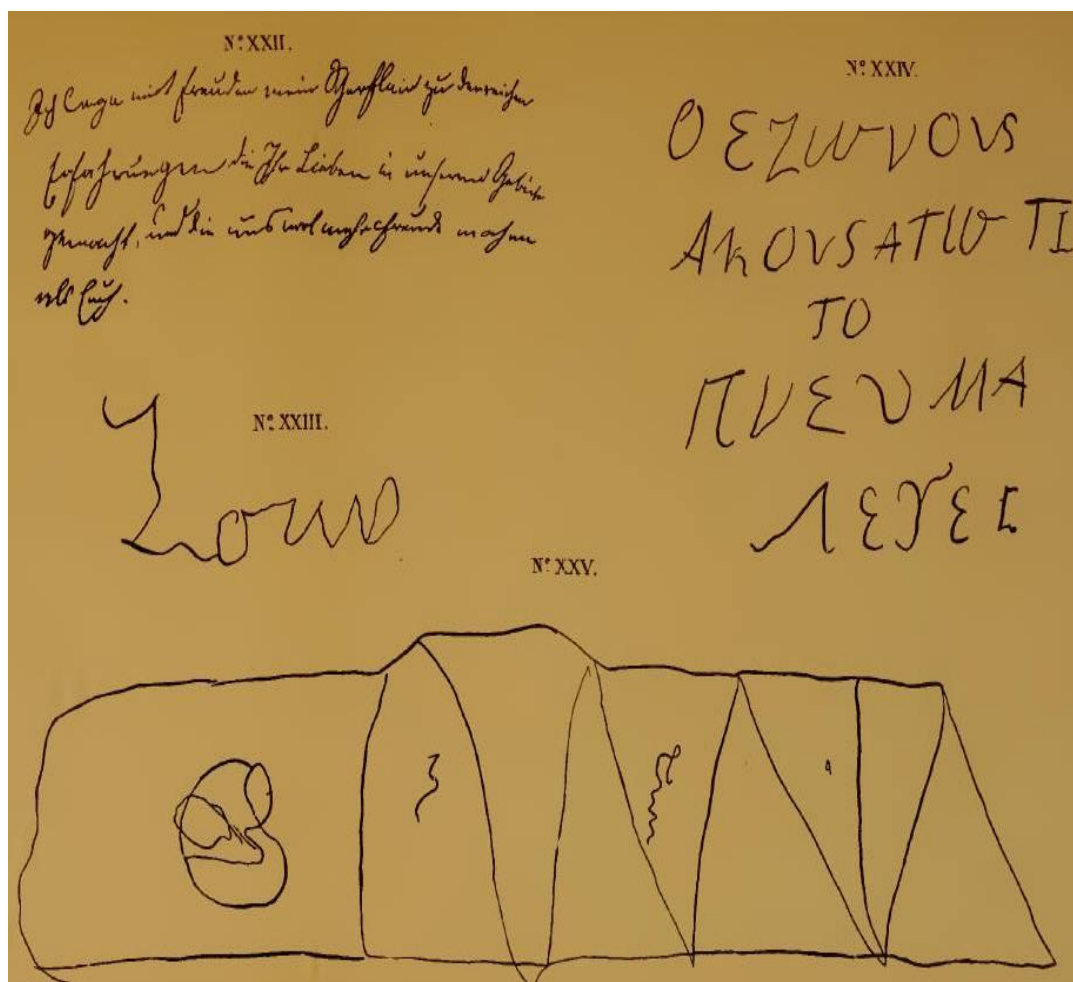 Nº XXII.
Ich lege mit Freuden mein Scherflein zu den reichen
Erfahrungen die Ihr Lieben in unserem Gebiete
gemacht, und die uns wol mehr Freude machen
als Euch.
Nº XXIII.
Nº XXIV.
Ο ΕΖωνΟυS
ΑκΟυSΑΤω ΤΙ
ΤΟ
ΠνΕυΜΑ
ΛΕγΕΙ
Nº XXV.